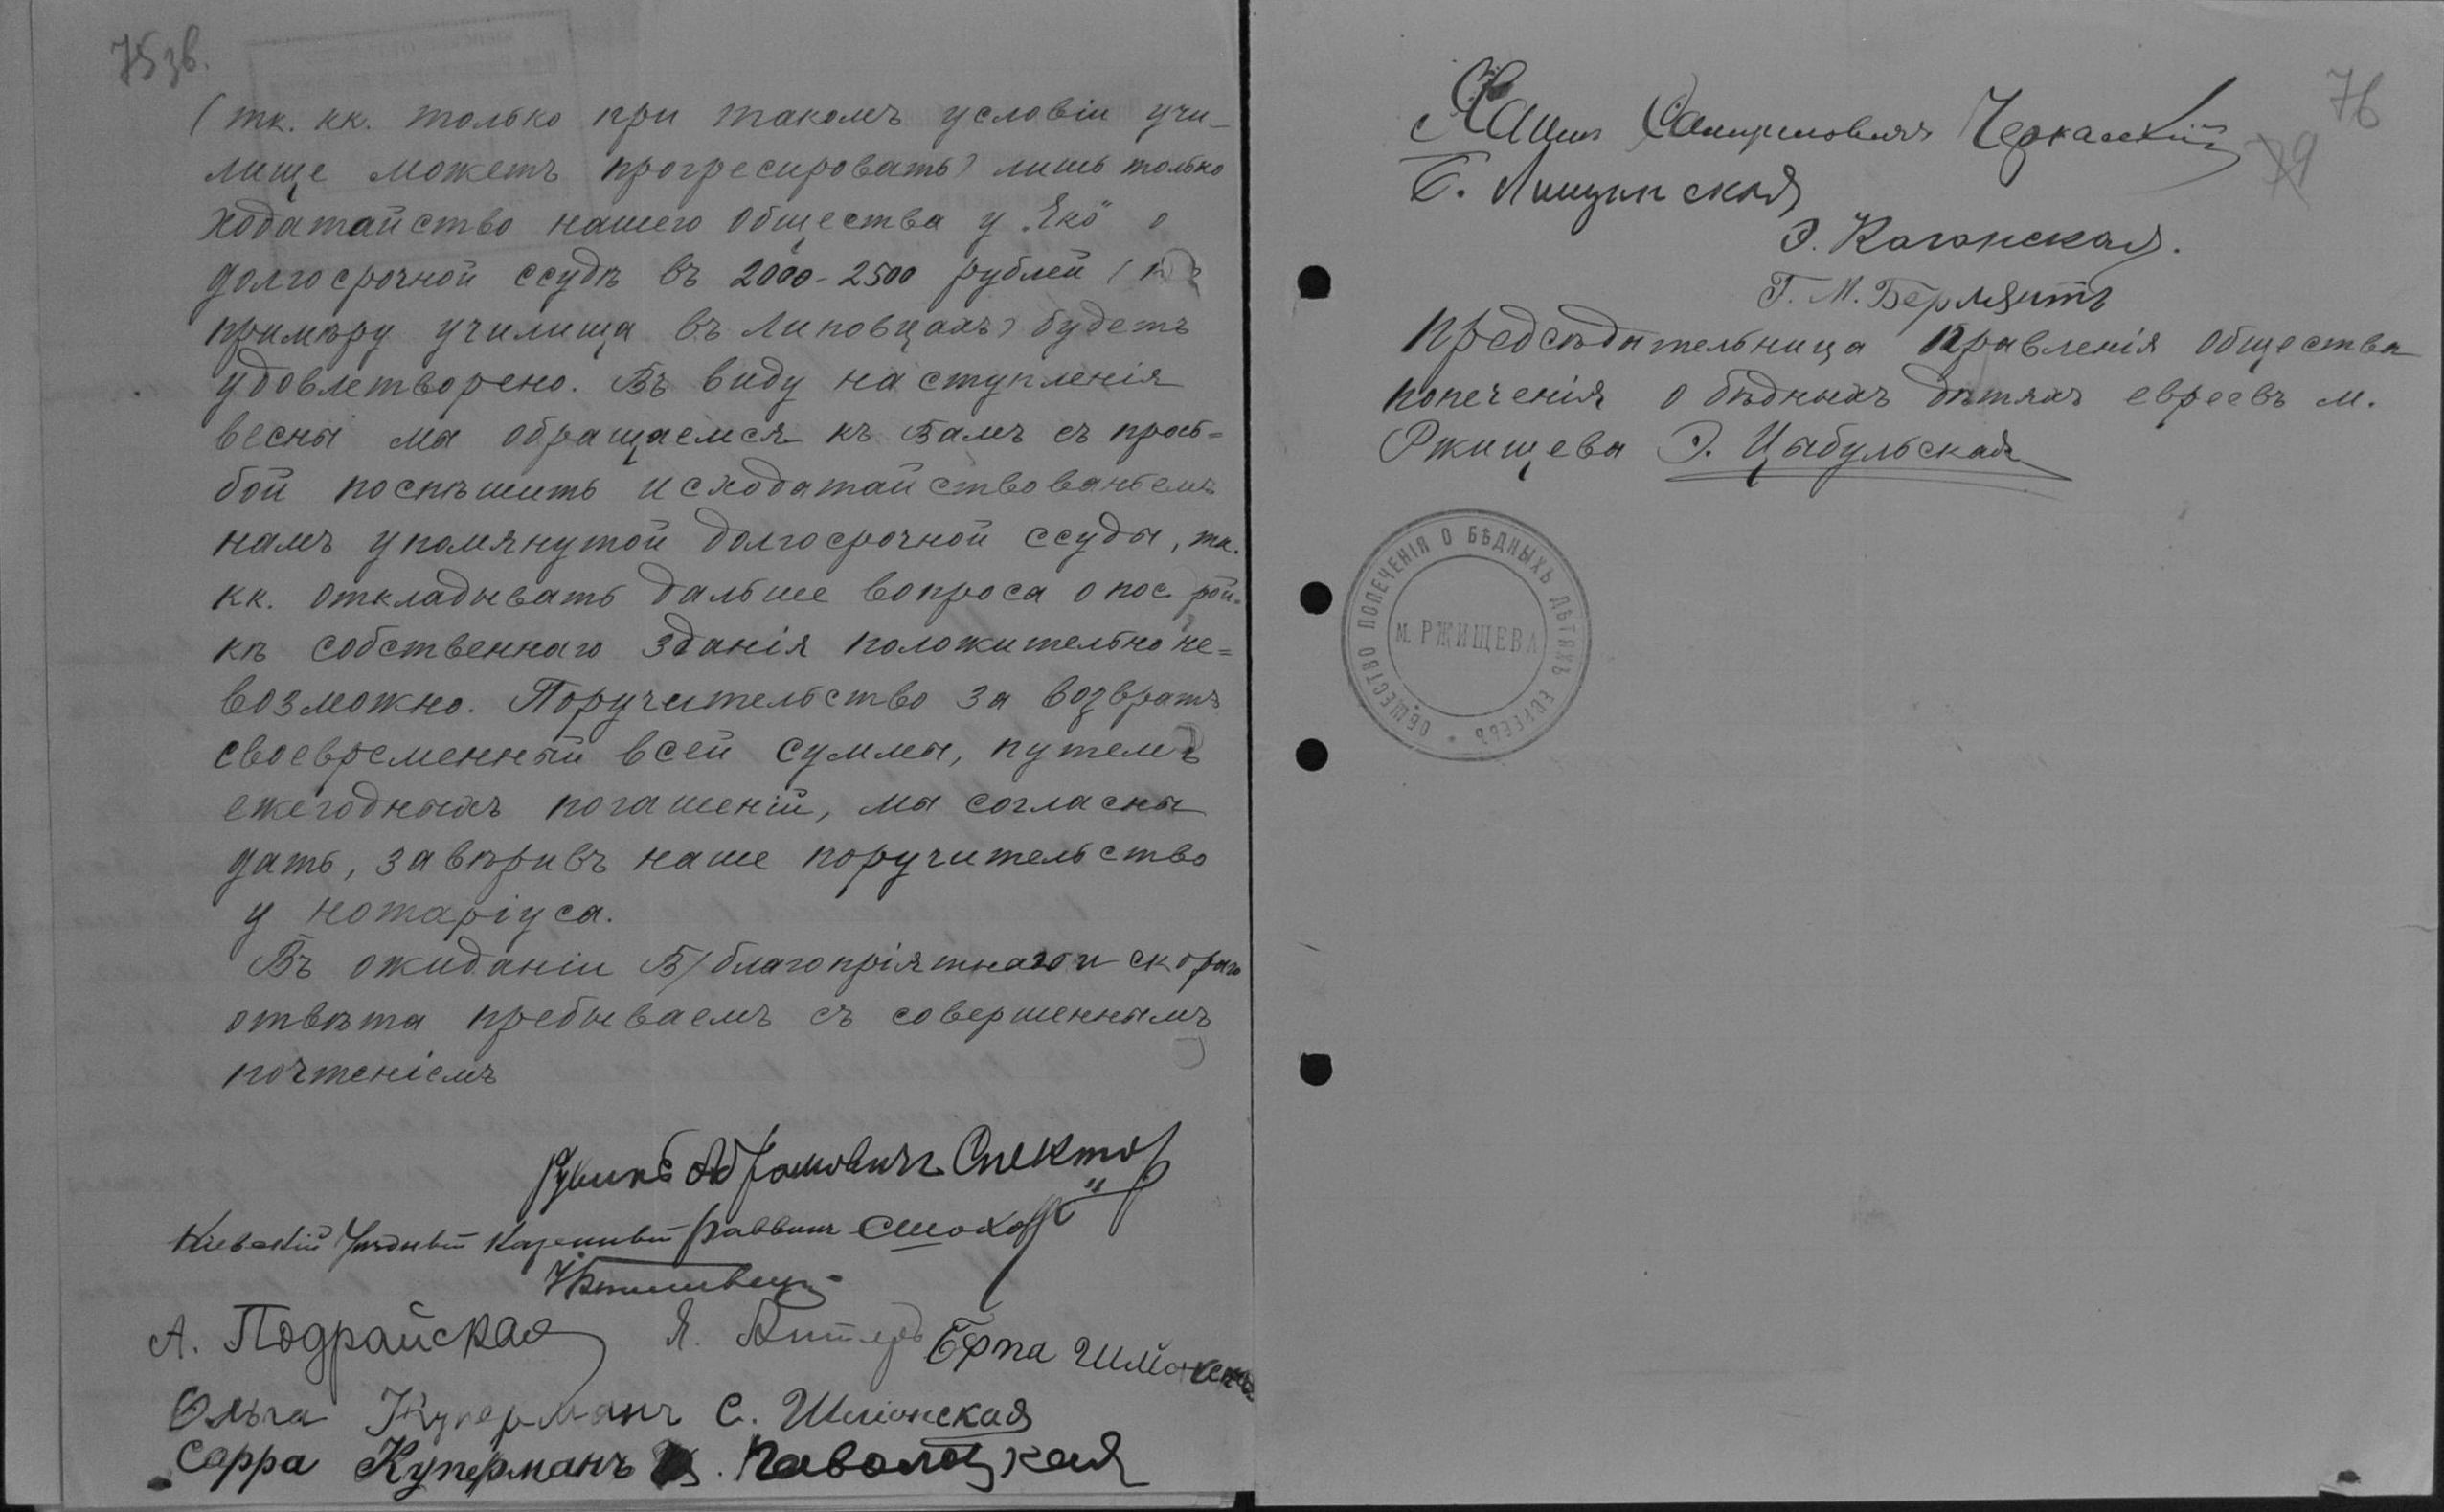 75 зв.
(тк. кк. только при такомъ условіи учи-
лище можетъ прогресировать) лишь только
ходатайство нашего общества у „Еко" о
долгосрочной ссудѣ въ 2000-2500 рублей (по
примѣру училища въ Липовцахъ) будетъ
удовлетворено. Въ виду наступленія
весны мы обращаемся къ Вамъ съ прось=
бой поспѣшить исходатайствованьемъ
намъ упомянутой долгосрочной ссуды, тк.
кк. откладывать дальше вопроса о построй=
кѣ собственнаго зданія положительно не=
возможно. Поручительство за возвратъ
своевременный всей суммы, путемъ
ежегодныхъ погашеній, мы согласны
дать, завѣривъ наше поручительство
у нотаріуса.
Въ ожиданіи В/благопріятнаго и скораго
отвѣта пребываемъ съ совершеннымъ
почтеніемъ
Рувинъ Абрамовичъ Спекторъ
Кіевскій Уѣздный Казенный Раввинъ
А. Подрайская Я. Берта
Ольга Куперманъ С. Шліонская
Сарра Куперманъ Паволоцкая
76
79
Черкасскій
Б. Лищинская
Э. Каганская.
Г. М. Бермантъ
Предсѣдательница Правленія Общества
попеченія о бѣдныхъ дѣтяхъ евреевъ м.
Ржищева Э. Цыбульская
ОБЩЕСТВО ПОПЕЧЕНІЯ О БѢДНЫХЪ ДѢТЯХЪ ЕВРЕЕВЪ
М. РЖИЩЕВА